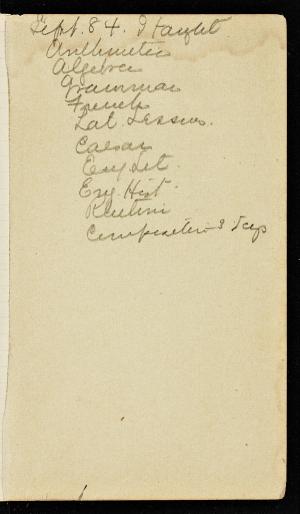 Sept. 84. I taught
Arithmetic
Algebra
Grammar
French
Lat. Lessons.
Caesar
Eng. Lit.
Eng. Hist.
Composition